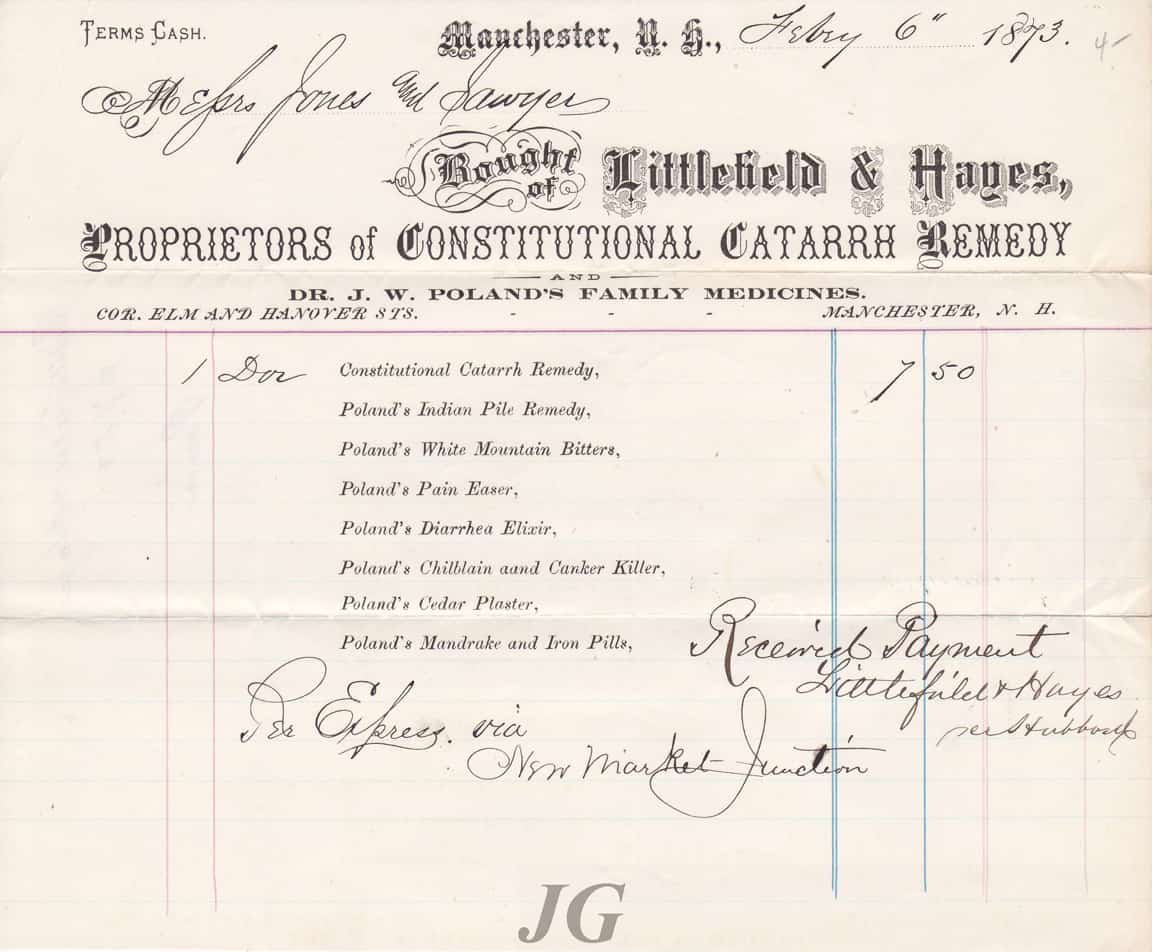 TERMS CASH.
Manchester, N. H., Febry 6" 1873.
4-
Messrs Jones and Sawyer
Bought of Littlefield & Hayes,
PROPRIETORS of CONSTITUTIONAL CATARRH REMEDY
AND
DR. J. W. POLAND'S FAMILY MEDICINES.
COR. ELM AND HANOVER STS. - - - MANCHESTER, N. H.
1 Doz Constitutional Catarrh Remedy, 7 50
Poland's Indian Pile Remedy,
Poland's White Mountain Bitters,
Poland's Pain Easer,
Poland's Diarrhea Elixir,
Poland's Chilblain aand Canker Killer,
Poland's Cedar Plaster,
Poland's Mandrake and Iron Pills,
Received Payment
Littlefield & Hayes
per Hubbard
Per Express. via
New Market Junction
JG